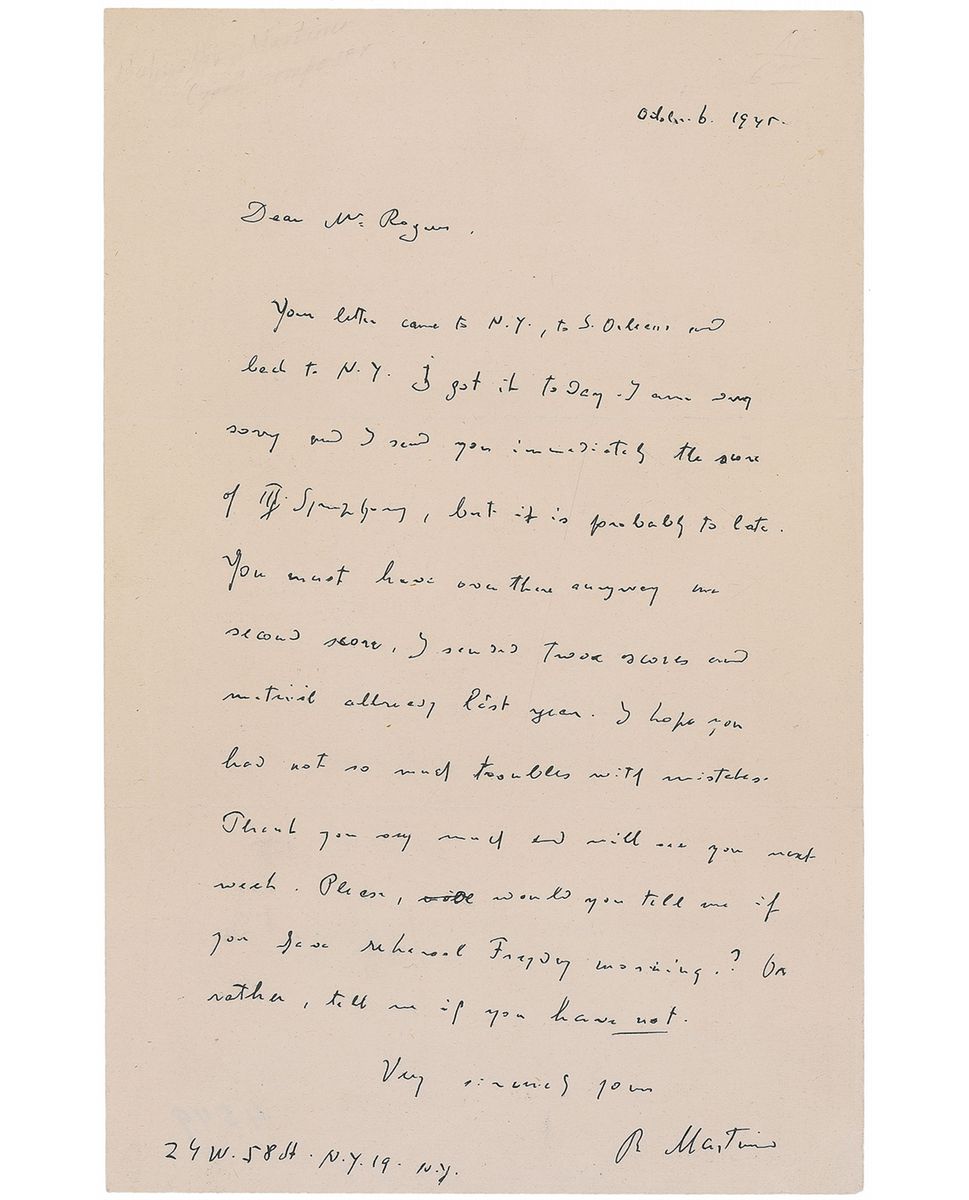 October 6. 1945.
Dear Mr Rogers,
Your letter came to N.Y., to S. Orleans and
back to N.Y. I got it to day. I am very
sorry and I send you immediately the score
of III Symphony, but it is probably to late.
You must have over there anyway
second score, I sended two scores and
material allready last year. I hope you
had not so much troubles with mistakes.
Thank you very much and will see you next
week. Please, would you tell me if
you have rehersal Frayday morning.? Or
rather, tell me if you have not.
Very sincerely yours
B. Martinu
24 W. 58 St. N.Y. 19. N.Y.